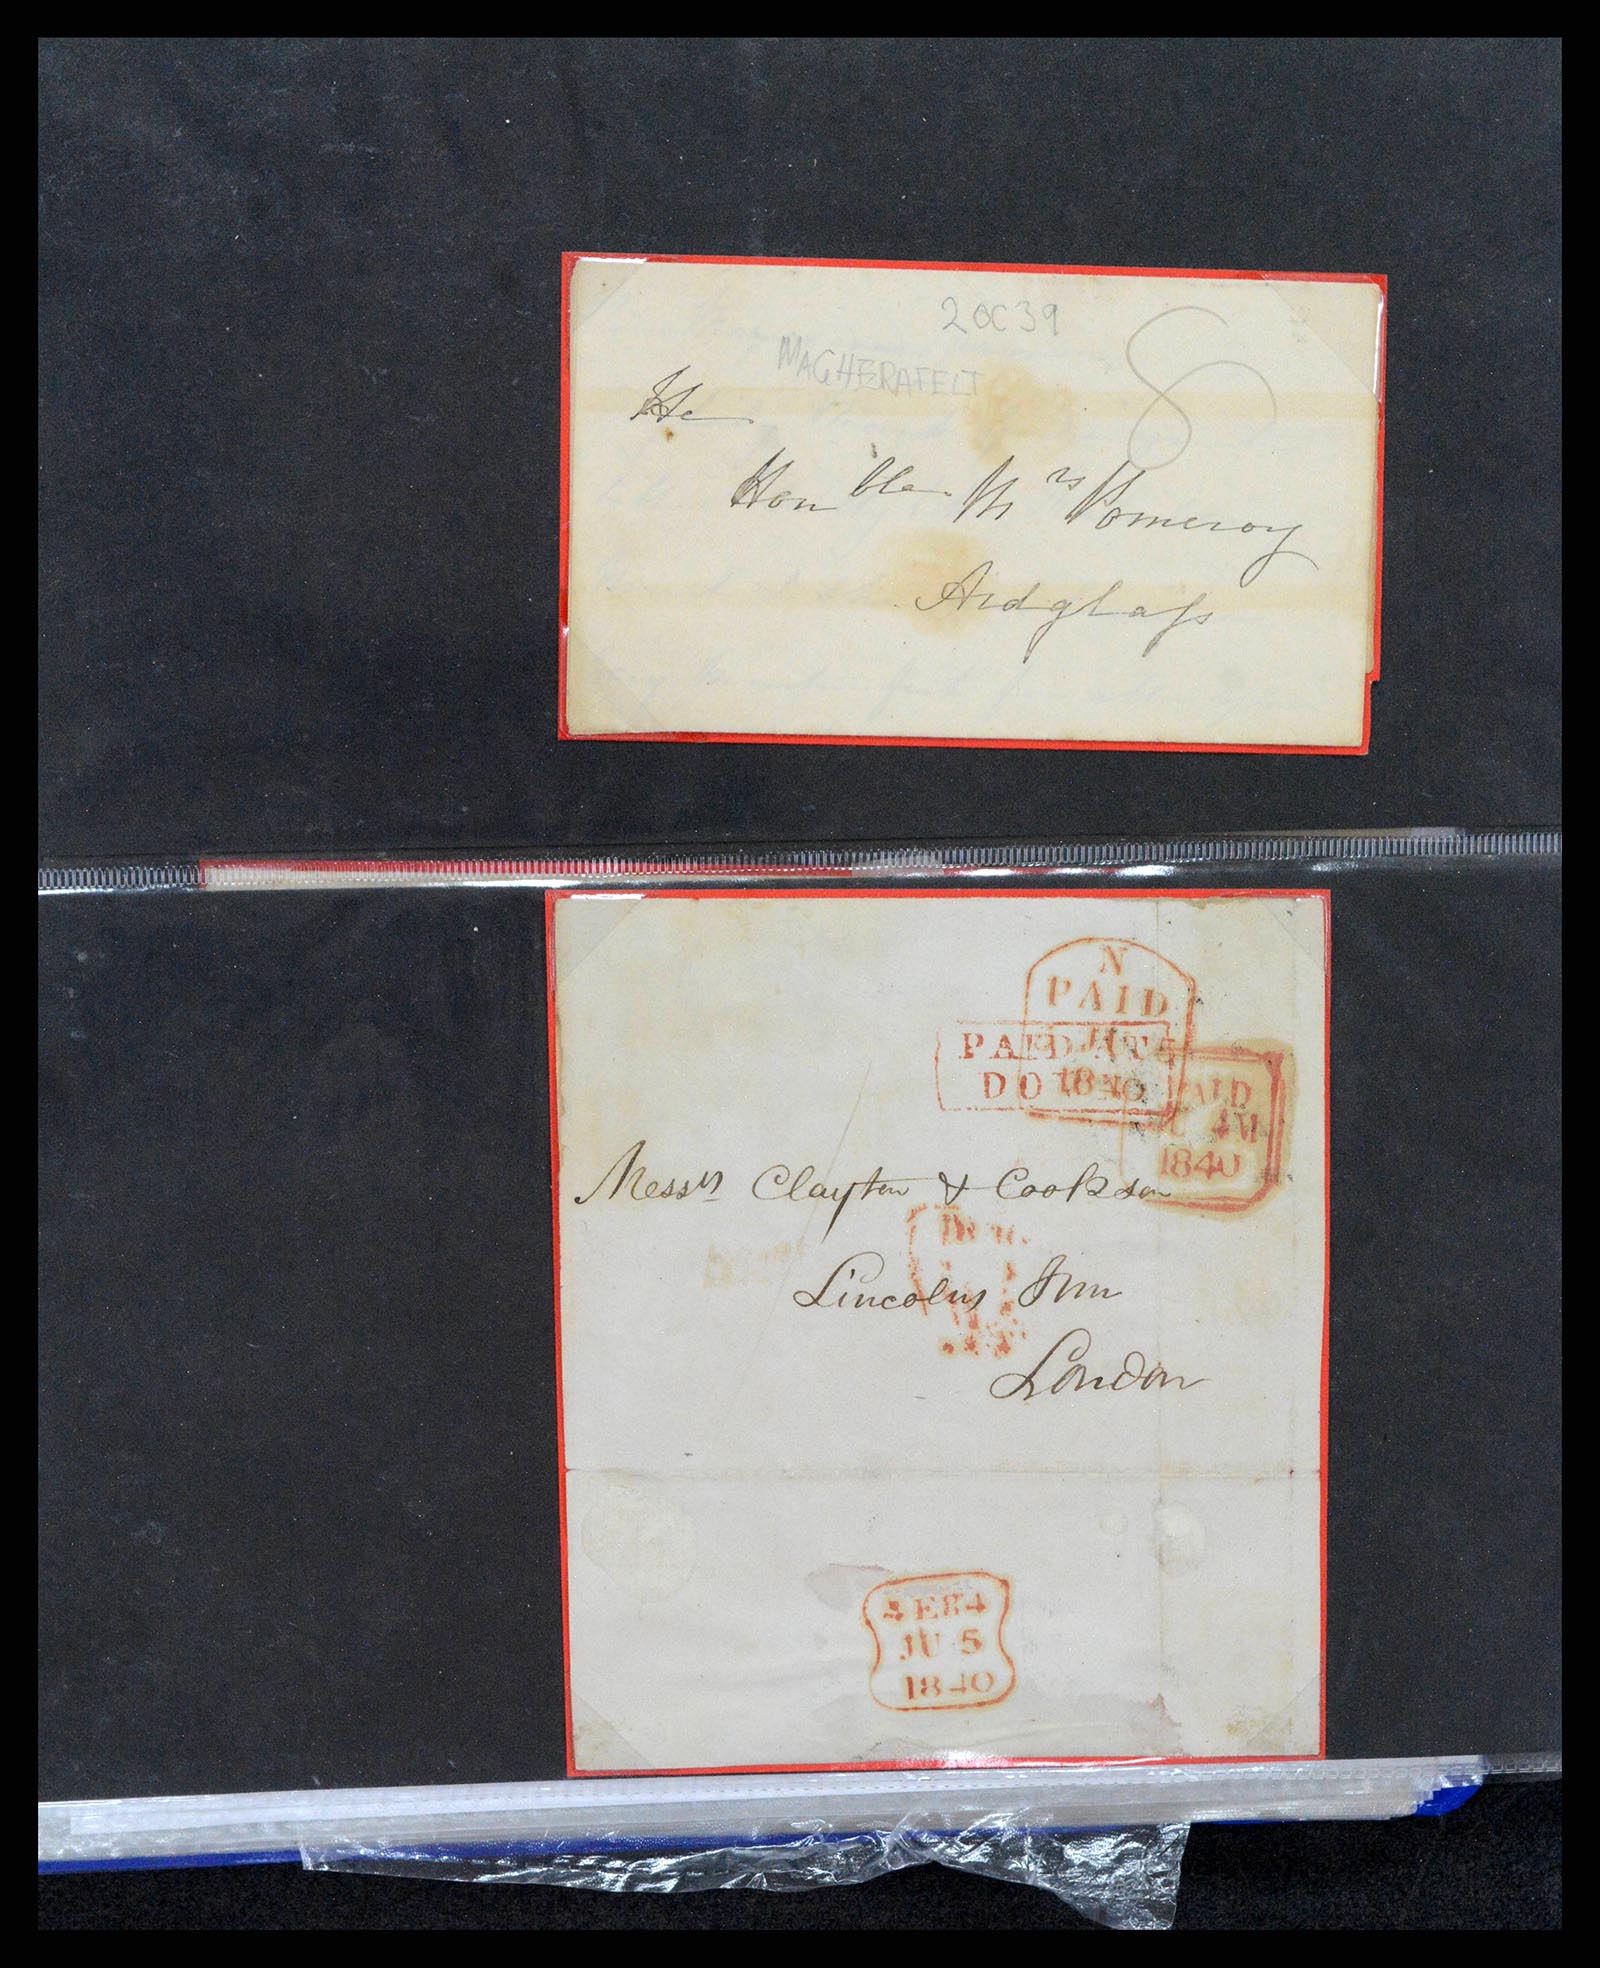 2 OC 39
MAGHERAFELT
8
The
Honble Mrs Pomeroy
Ardglass
N
PAID
5 JU 5
1840
PAID AT
DO
PAID
JU 4 M
1840
Messrs Clayton & Cookson
Lincolns Inn
London
4 E 84
JU 5
1840